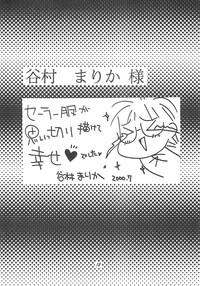 谷村 まりか 様
セーラー服が
思い切り描けて
幸せ♥でした♪
谷村まりか
2000.7